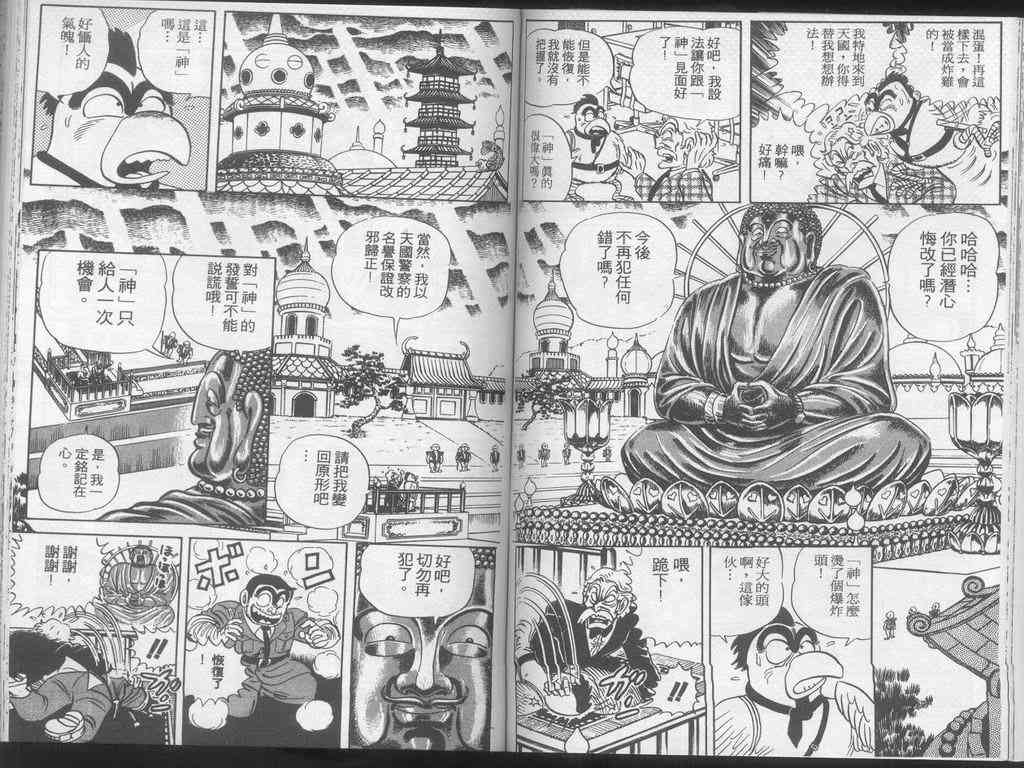 混蛋！再這
樣下去，會
被當成炸雞
的！
我特地來到
天國，你得
替我想想辦
法！
喂，
幹嘛？
好痛！
好吧，我設
法讓你跟「
神」見面好
了！
但是能不
能恢復，
我就沒有
把握了。
「神」真的
很偉大嗎？
哈哈哈…
你已經潛心
悔改了嗎？
今後
不再犯任何
錯了嗎？
「神」怎麼
燙了個爆炸
頭！
好大的頭
啊，這傢
伙…
喂，
跪下！
ガッ
!!
這…
這是「神」
嗎…
好懾人的
氣魄！
當然，我以
天國警察的
名譽保證改
邪歸正！
對「神」的
發誓可不能
說謊哦！
「神」只
給人一次
機會。
是，我一
定銘記在
心。
請把我變
回原形吧
…
好吧，
切勿再
犯了。
ボン
恢復了
！
謝謝！
謝謝，
!!